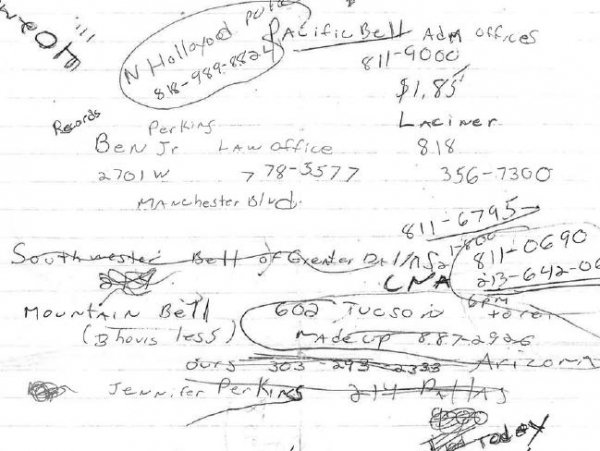 N Hollywood
818-989-8824
Pacific Bell Adm Offices
811-9000
$1.85
Records
Perkins
Ben Jr Law office
2701 W 778-5577
Manchester Blvd.
Laciner
818
356-7300
811-6795
Southwester Bell of Greater Dallas
1-800
811-0690
213-642-06
CNA
6pm
Mountain Bell
(3 hours less)
602 Tucson
Made up 887-2926
Arizona
ours 303-293-2333
Jennifer Perkins 214 Dallas
Today